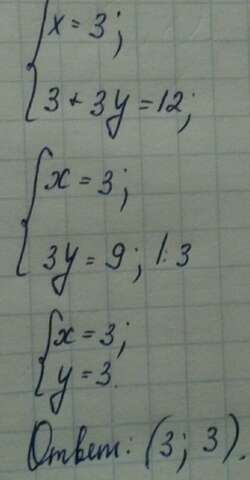 x = 3;
3 + 3y = 12;
x = 3;
3y = 9; |: 3
x = 3;
y = 3.
Ответ: (3; 3).